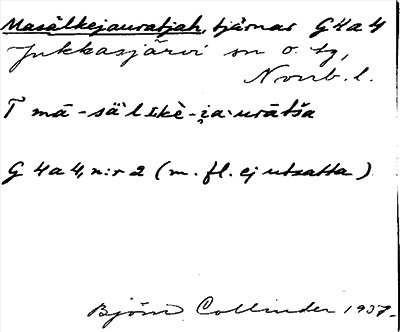 Masälkejauratjah, tjärnar G4a4
Jukkasjärvi sn o. tg,
Norrb. l.
T mā-sä'lɪkè-i̯a·urātša
G 4a4, n:r 2 (m. fl. ej utsatta)
Björn Collinder 1937.